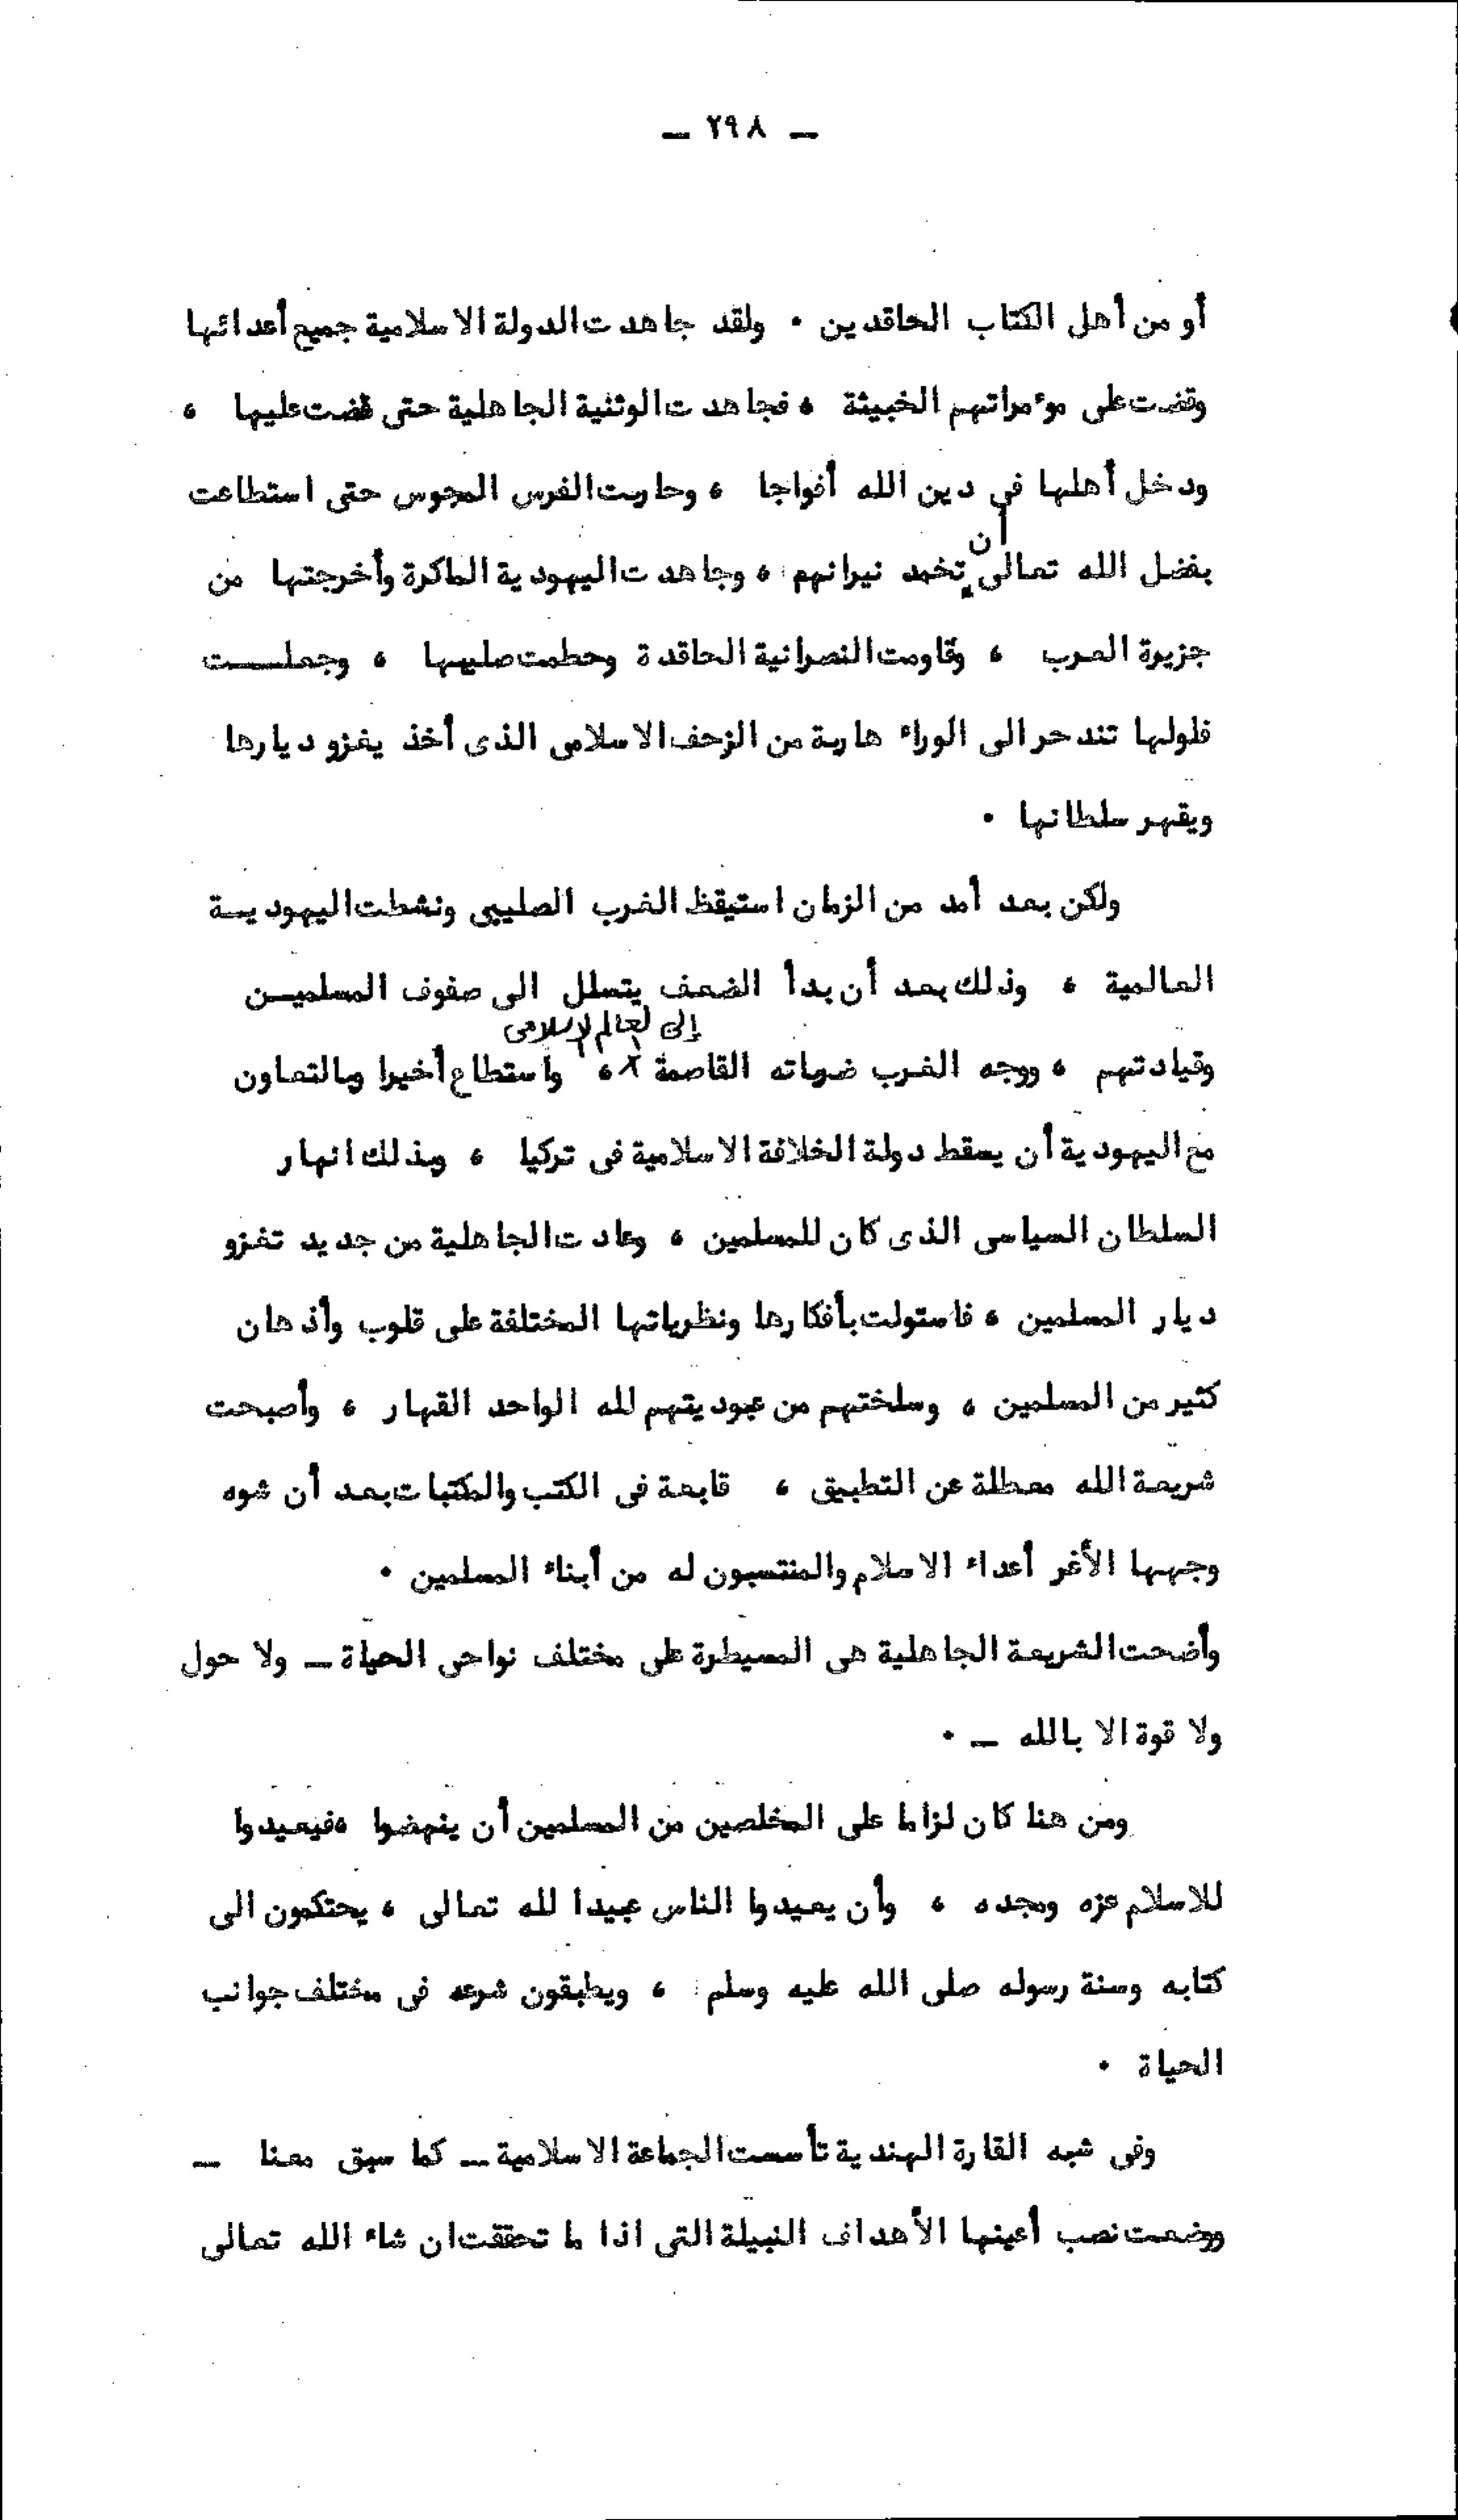 — ٢٩٨ —
أو من أهل الكتاب الحاقدين ٠ ولقد جاهدت الدولة الاسلامية جميع أعدائها
وقضت على مؤمراتهم الخبيثة ، فجاهدت الوثنية الجاهلية حتى قضت عليها ،
ودخل أهلها في دين الله أفواجا ، وحاربت الفرس المجوس حتى استطاعت
بفضل الله تعالى أن تخمد نيرانهم ، وجاهدت اليهودية الماكرة وأخرجتها من
جزيرة العرب ، وقاومت النصرانية الحاقدة وحطمت صليبها ، وجعلـــت
فلولها تندحر الى الوراء هاربة من الزحف الاسلامى الذى أخذ يغزو ديارها
ويقهر سلطانها ٠
ولكن بعد أمد من الزمان استيقظ الغرب الصليبى ونشطت اليهوديــة
العالمية ، وذلك بعد أن بدأ الضعف يتسلل الى صفوف المسلميــن
وقيادتهم ، ووجه الغرب ضرباته القاصمة إلى العالم الإسلامى ، واستطاع أخيرا وبالتعاون
مع اليهودية أن يسقط دولة الخلافة الاسلامية فى تركيا ، وبذلك انهار
السلطان السياسى الذى كان للمسلمين ، وعادت الجاهلية من جديد تغزو
ديار المسلمين ، فاستولت بأفكارها ونظرياتها المختلفة على قلوب وأذهان
كثير من المسلمين ، وسلختهم من عبوديتهم لله الواحد القهار ، وأصبحت
شريعة الله معطلة عن التطبيق ، قابعة فى الكتب والمكتبات بعد أن شوه
وجهها الأغر أعداء الاسلام والمنتسبون له من أبناء المسلمين ٠
وأضحت الشريعة الجاهلية هى المسيطرة على مختلف نواحى الحياة — ولا حول
ولا قوة الا بالله — ٠
ومن هنا كان لزاما على المخلصين من المسلمين أن ينهضوا ،فيعيدوا
للاسلام عزه ومجده ، وأن يعيدوا الناس عبيدا لله تعالى ، يحتكمون الى
كتابه وسنة رسوله صلى الله عليه وسلم ، ويطبقون شرعه فى مختلف جوانب
الحياة ٠
وفى شبه القارة الهندية تأسست الجماعة الاسلامية — كما سبق معنا —
ووضعت نصب أعينها الأهداف النبيلة التى اذا ما تحققت ان شاء الله تعالى